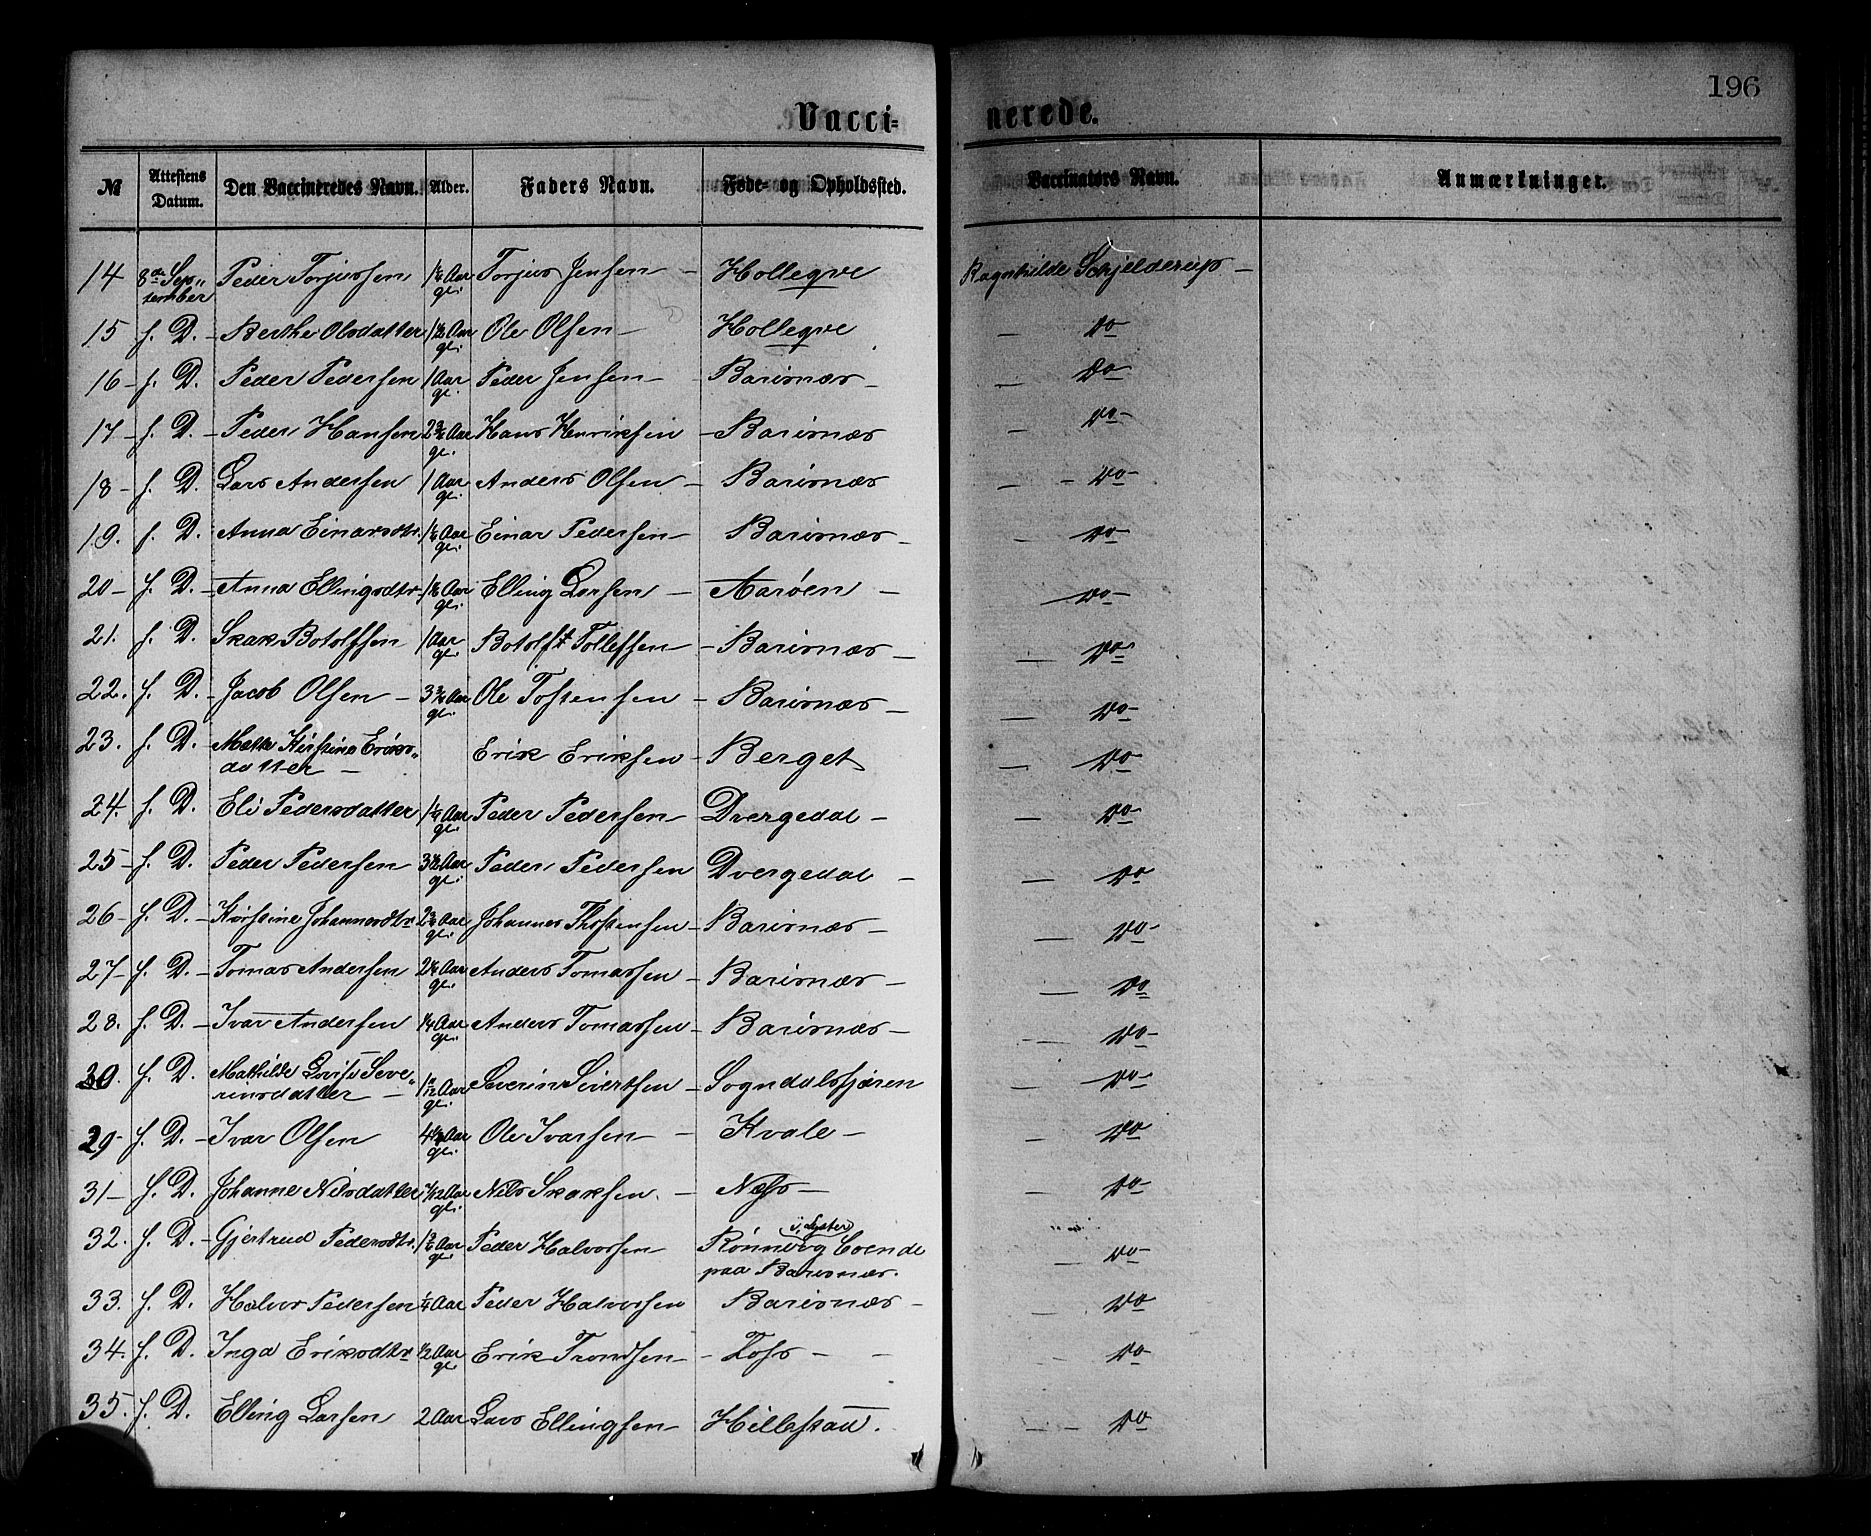 196
Vacci- nerede.
№ Attestens Datum. Den Vaccineredes Navn. Alder. Faders Navn. Føde- og Opholdssted. Vaccinators Navn. Anmærkninger.
14 8de Sep„tember Peder Torjussen Aar gl. Torjus Jensen – Holleqve Ragnhilde Schjelderup –
15 f. D. – Berthe Olsdatter 1½ Aar gl. Ole Olsen – Holleqve – Do
16 – f. D. Peder Pedersen 1 Aar gl. Peder Jensen – Barsnæs – – Do
17 – f. D. – Peder Hansen 2¾ Aar gl. Hans Henriksen – Barsnæs – Do –
18 – f. D. Lars Andersen 1 Aar gl. Anders Olsen – Barsnæs – – Do –
19. f. D. Anna Einarsdtr. Aar gl. Einar Pedersen – Barsnæs – – Do –
20 – f. D. – Anna Ellingsdtr. Aar gl. Elling Larsen – Aarøen – – Do –
21. f. D. Skak Botolfsen 1 Aar gl. Botolf Tollefsen – Barsnæs – – Do
22. f. D. – Jacob Olsen – 3¾ Aar gl. Ole Tostensen – Barsnæs – – Do –
23. f. D. – Mette Kirstine Eriks„datter – Erik Eriksen – Berget – Do
24. f. D. Eli Pedersdatter 1¼ Aar gl. Peder Pedersen – Dvergedal – – Do –
25 – f. D. – Peder Pedersen 3½ Aar gl. Peder Pedersen Dvergedal – – Do
26 – f. D. – Kirstine Johannesdtr 2¾ Aar gl. Johannes Thostensen – Barsnæs – – Do –
27 – f. D. – Tomas Andersen 2¼ Aar gl. Anders Tomassen – Barsnæs – – Do
28. f. D. – Ivar Andersen ¼ Aar gl. Anders Tomassen – Barsnæs – – Do –
30. f. D. Mathilde Lovise Seve„rinsdatter – Aar gl. Severin Sivertsen – Sogndalsfjæren – Do –
29 – f. D. – Ivar Olsen 4½ Aar gl. Ole Ivarsen – – Kvale – – Do
31 – f. D. Johanne Nilsdatter Aar gl. Nils Skaksen. – Næss – – Do –
32. f. D. – Gjertrud Pedersdtr. Aar gl. Peder Halvorsen Rønneog i Lyster Boende paa Barsnæs. Do –
33. f. D. Halvor Pedersen ¼ Aar Peder Halvorsen Barsnæs – – Do
34. f. D. Inga Eriksdtr ½ Aar gl. Erik Trondsen – – Foss – – Do –
35. f. D. Elling Larsen 2 Aar Lars Ellingsen – Hillestad. – – Do